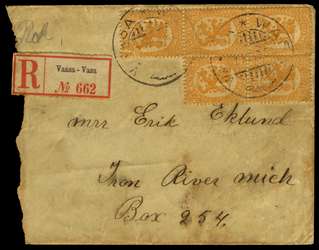 R
Vaasa - Vasa
№ 662
mrr Erik Eklund
Iron River mich
Box 254.